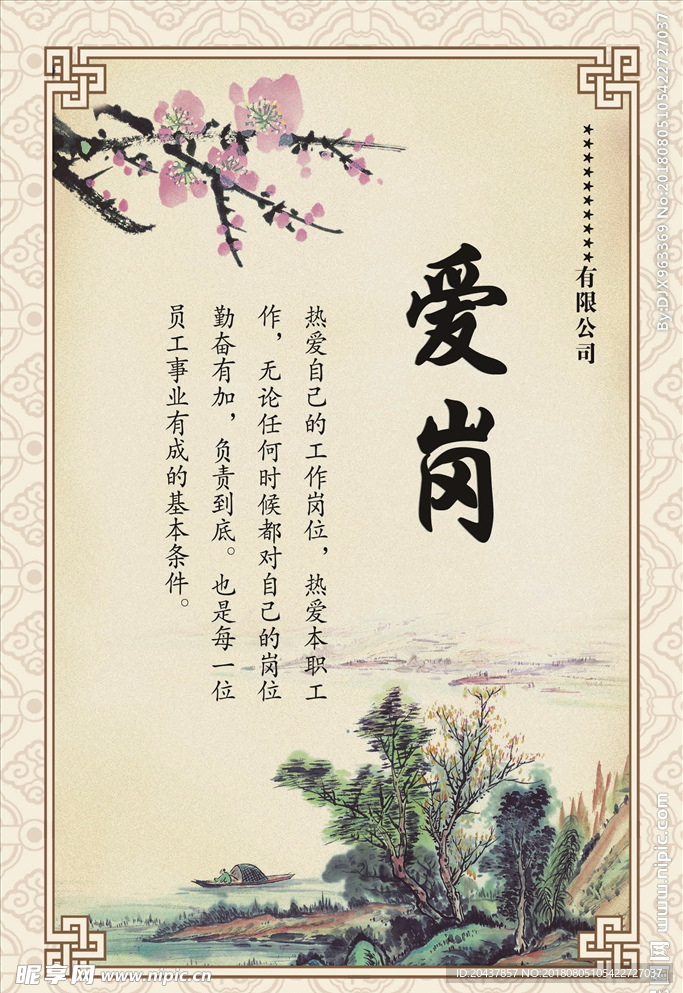 ★★★★★★★★★★有限公司
爱岗
热爱自己的工作岗位，热爱本职工
作，无论任何时候都对自己的岗位
勤奋有加，负责到底。也是每一位
员工事业有成的基本条件。
By:DJX963369 No:20180805105422727037
www.nipic.com
昵享网 www.nipic.cn
ID:20437857 NO:20180805105422727037